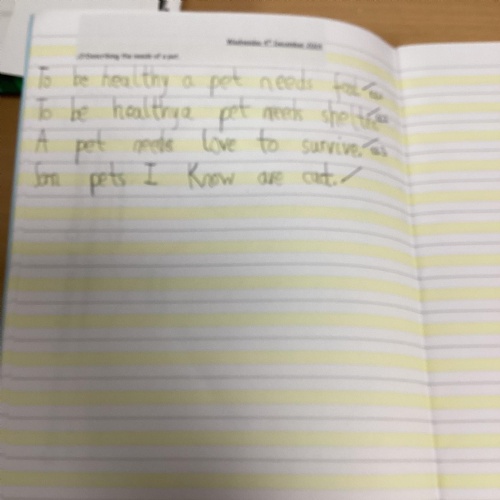 Wednesday 4th December 2024
Describing the needs of a pet
To be healthy a pet needs food
To be healthy a pet needs shelter
A pet needs love to survive.
Som pets I know are cat.